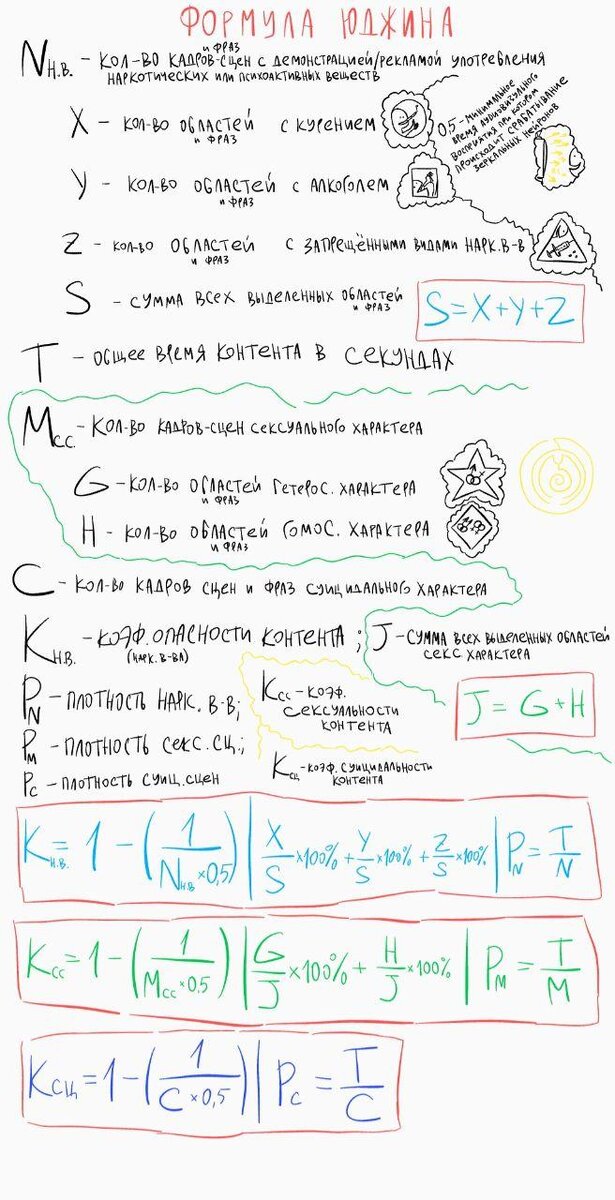 ФОРМУЛА ЮДЖИНА
Nн.в. - КОЛ-ВО КАДРОВ-СЦЕН и ФРАЗ С ДЕМОНСТРАЦИЕЙ/РЕКЛАМОЙ УПОТРЕБЛЕНИЯ
НАРКОТИЧЕСКИХ ИЛИ ПСИХОАКТИВНЫХ ВЕЩЕСТВ
X - КОЛ-ВО ОБЛАСТЕЙ и ФРАЗ С КУРЕНИЕМ
0,5 - МИНИМАЛЬНОЕ
ВРЕМЯ АУДИОВИЗУАЛЬНОГО
ВОСПРИЯТИЯ ПРИ КОТОРОМ
ПРОИСХОДИТ СРАБАТЫВАНИЕ
ЗЕРКАЛЬНЫХ НЕЙРОНОВ
Y - КОЛ-ВО ОБЛАСТЕЙ и ФРАЗ С АЛКОГОЛЕМ
Z - КОЛ-ВО ОБЛАСТЕЙ и ФРАЗ С ЗАПРЕЩЁННЫМИ ВИДАМИ НАРК. В-В
S - СУММА ВСЕХ ВЫДЕЛЕННЫХ ОБЛАСТЕЙ и ФРАЗ
S=X+Y+Z
T - ОБЩЕЕ ВРЕМЯ КОНТЕНТА В СЕКУНДАХ
Mсс. - КОЛ-ВО КАДРОВ-СЦЕН СЕКСУАЛЬНОГО ХАРАКТЕРА
G - КОЛ-ВО ОБЛАСТЕЙ и ФРАЗ ГЕТЕРОС. ХАРАКТЕРА
H - КОЛ-ВО ОБЛАСТЕЙ и ФРАЗ ГОМОС. ХАРАКТЕРА
C - КОЛ-ВО КАДРОВ СЦЕН И ФРАЗ СУИЦИДАЛЬНОГО ХАРАКТЕРА
Kн.в. - КОЭФ. ОПАСНОСТИ КОНТЕНТА (НАРК. В-ВА) ;
J - СУММА ВСЕХ ВЫДЕЛЕННЫХ ОБЛАСТЕЙ
СЕКС ХАРАКТЕРА
PN - ПЛОТНОСТЬ НАРК. В-В;
Kсс - КОЭФ.
СЕКСУАЛЬНОСТИ
КОНТЕНТА
J=G+H
PM - ПЛОТНОСТЬ СЕКС. СЦ.;
Kсц - КОЭФ. СУИЦИДАЛЬНОСТИ
КОНТЕНТА
PC - ПЛОТНОСТЬ СУИЦ. СЦЕН
Kн.в. = 1 - (1/Nн.в×0,5) | X/S ×100% + Y/S ×100% + Z/S ×100% | PN = T/N
Kсс = 1 - (1/Mсс×0,5) | G/J ×100% + H/J ×100% | PM = T/M
Kсц = 1 - (1/C×0,5) | PC = T/C